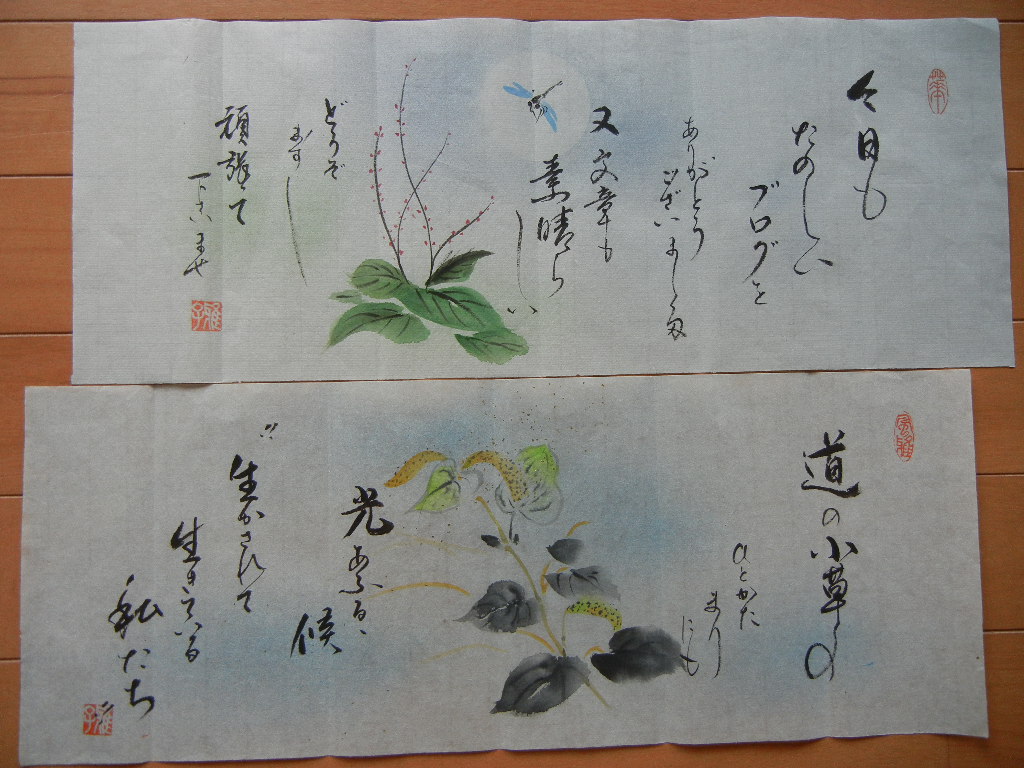 今日も
たのしい
ブログを
ありがとう
ございました
又文章も
素晴ら
しい
どうぞ
ます
頑張て
下さいませ
道の小草の
ひとかた
まりにも
光あふるゝ
候
〃
生かされて
生きている
私たち
雅子